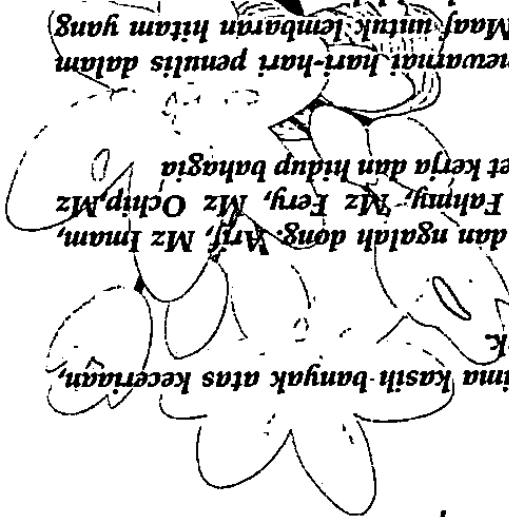 ima kasih banyak atas keceriaan,
k.
dan ngalah dong. Arif, Mz Imam,
Fahmy, Mz Fery, Mz Ochip,Mz
et kerja dan hidup bahagia
newarnai hari-hari penulis dalam
Maaf untuk lembaran hitam yang